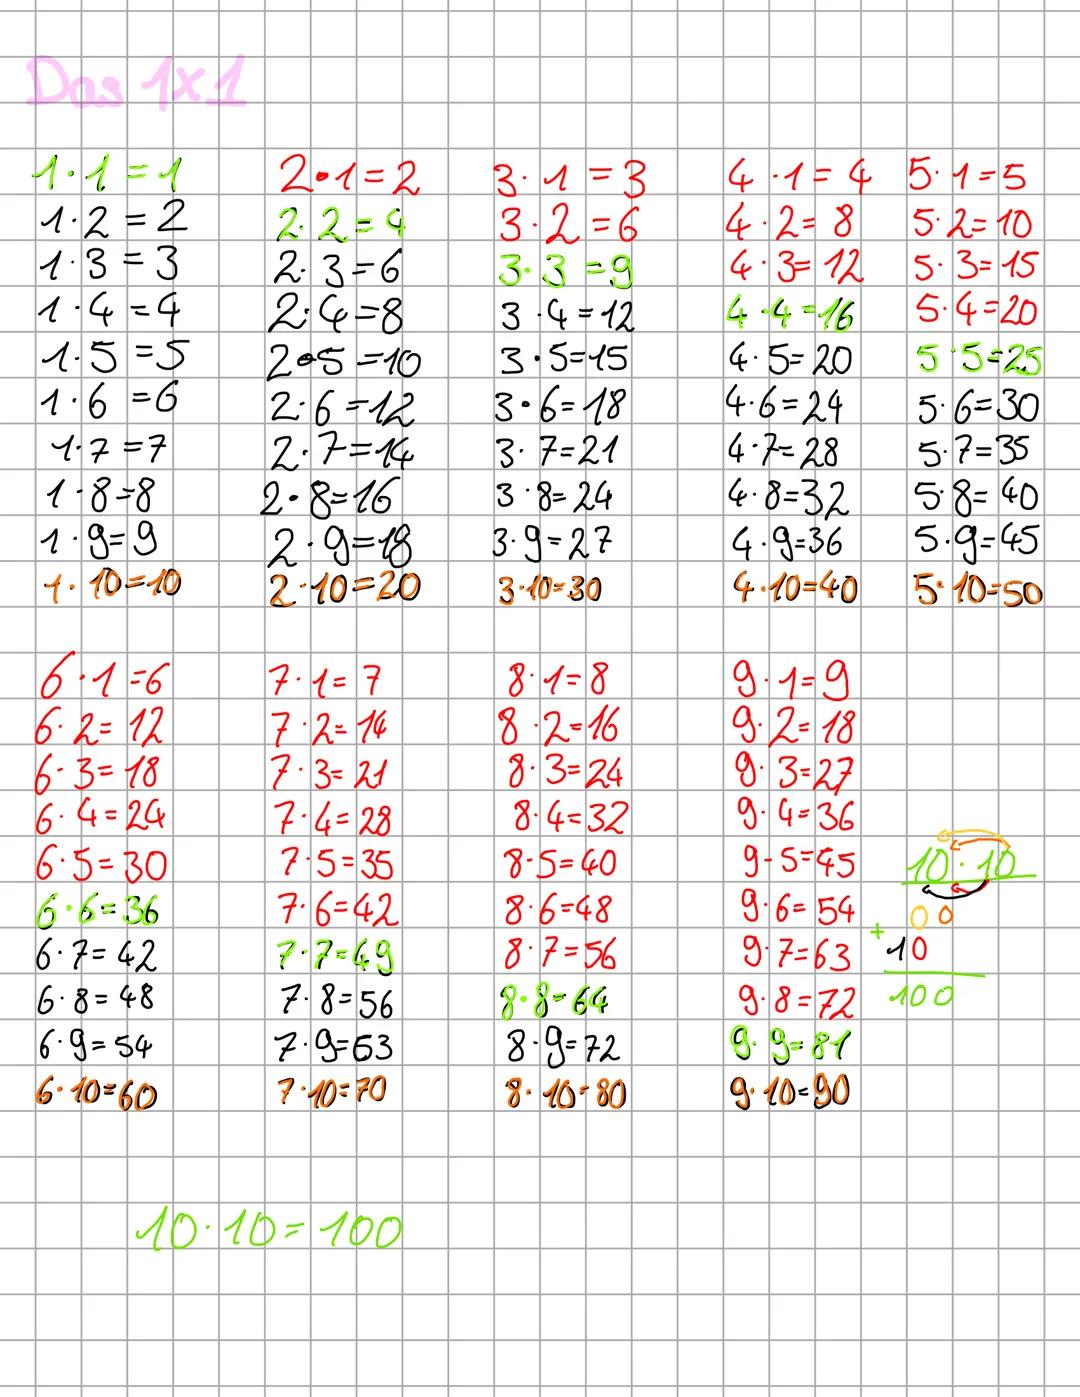 Das 1x1
1·1=1
1·2=2
1·3=3
1·4=4
1·5=5
1·6=6
1·7=7
1·8=8
1·9=9
1·10=10
2·1=2
2·2=4
2·3=6
2·4=8
2·5=10
2·6=12
2·7=14
2·8=16
2·9=18
2·10=20
3·1=3
3·2=6
3·3=9
3·4=12
3·5=15
3·6=18
3·7=21
3·8=24
3·9=27
3·10=30
4·1=4
4·2=8
4·3=12
4·4=16
4·5=20
4·6=24
4·7=28
4·8=32
4·9=36
4·10=40
5·1=5
5·2=10
5·3=15
5·4=20
5·5=25
5·6=30
5·7=35
5·8=40
5·9=45
5·10=50
6·1=6
6·2=12
6·3=18
6·4=24
6·5=30
6·6=36
6·7=42
6·8=48
6·9=54
6·10=60
7·1=7
7·2=14
7·3=21
7·4=28
7·5=35
7·6=42
7·7=49
7·8=56
7·9=63
7·10=70
8·1=8
8·2=16
8·3=24
8·4=32
8·5=40
8·6=48
8·7=56
8·8=64
8·9=72
8·10=80
9·1=9
9·2=18
9·3=27
9·4=36
9·5=45
9·6=54
9·7=63
9·8=72
9·9=81
9·10=90
10·10
00
+10
100
10·10=100